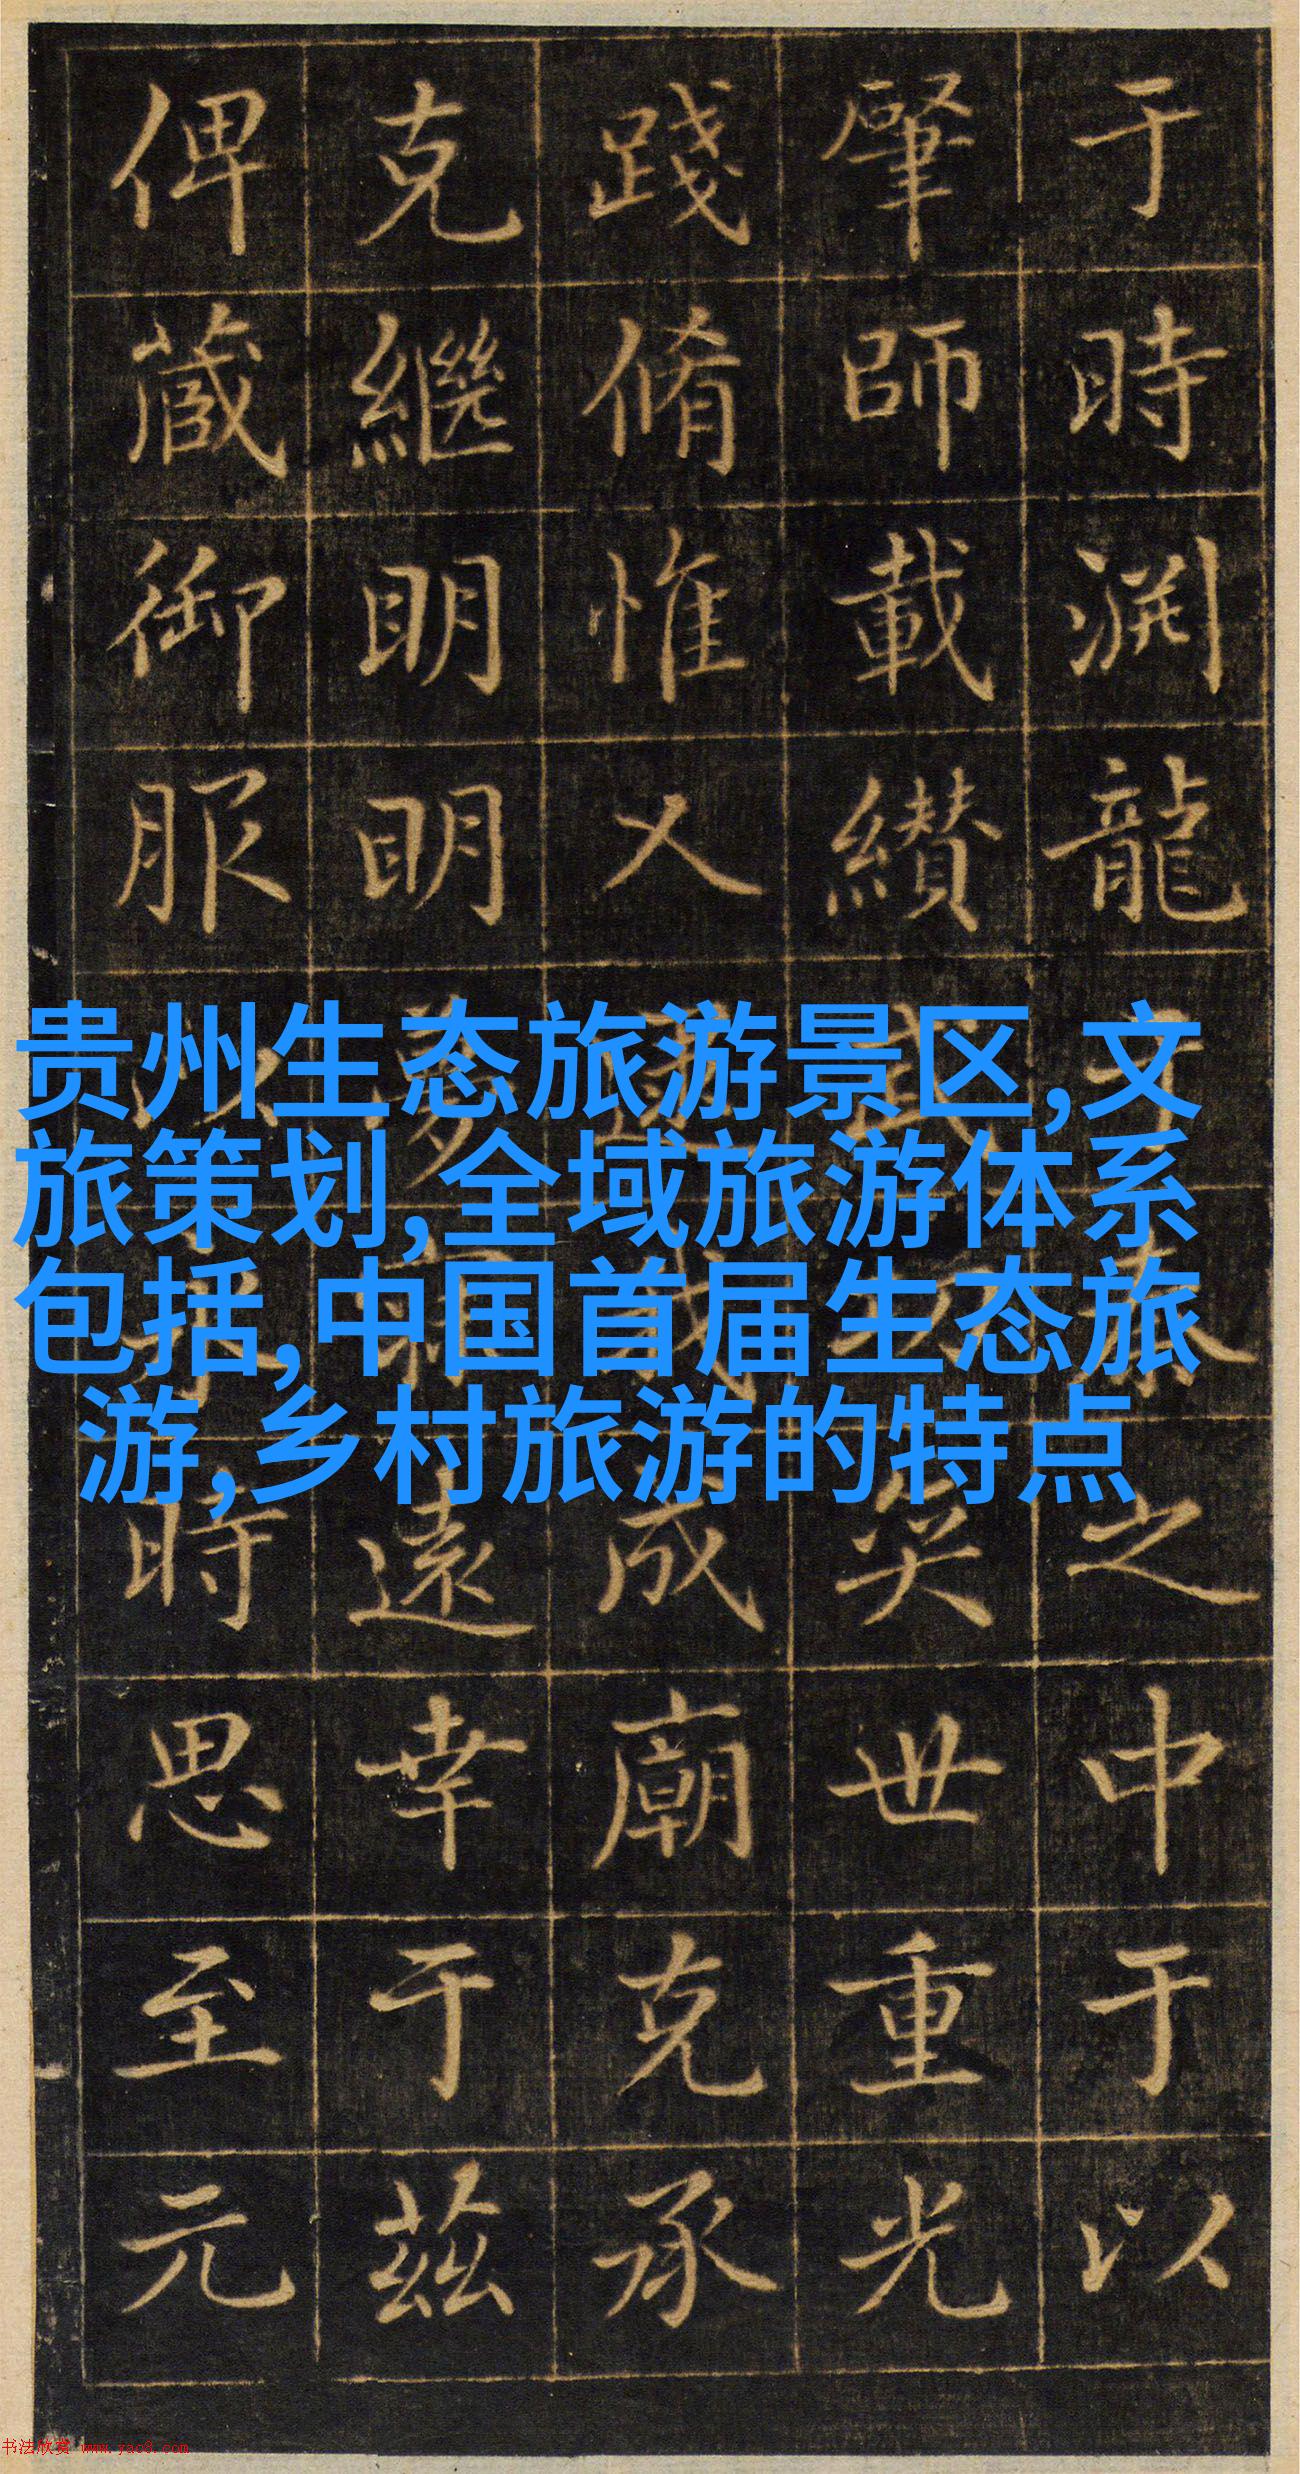 于時渕龍之中于以
肇師載纘奕世重光
踐脩惟乂成廟克承
克繼明明遠幸于茲
俾蕆御服時思至元
贵州生态旅游景区,文
旅策划,全域旅游体系
包括,中国首届生态旅
游,乡村旅游的特点
书法欣赏 www.yac8.com